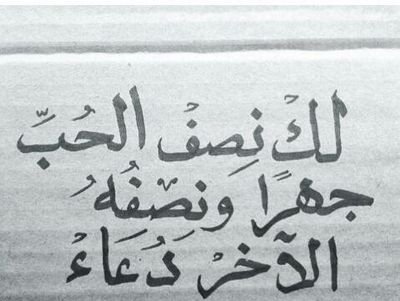 لكَْ نِصفْ الحُبِّ
جهرًا وَنِصْفُهُ
الآخرْ دُعَاءْ